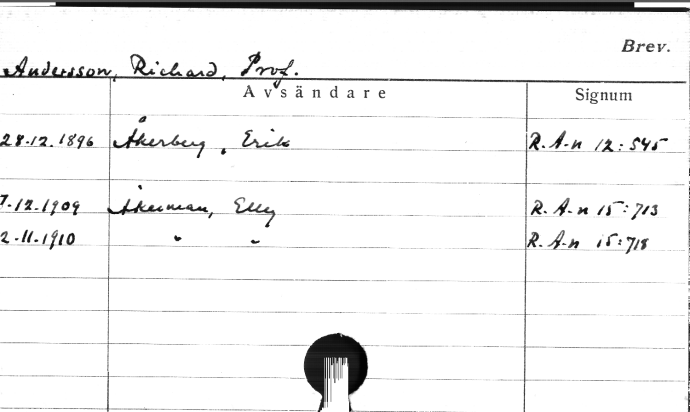 Brev.
Andersson, Richard, Prof.
Avsändare Signum
28.12.1896 Åkerberg, Erik R. A-n 12:545
7.12.1909 Åkerman, Elly R. A-n 15:713
2.11.1910 " " R. A-n 15:718